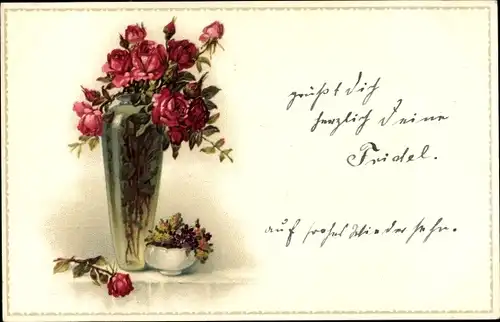 grüßt dich
herzlich Deine
Fridel.
auf frohes Wiedersehn.